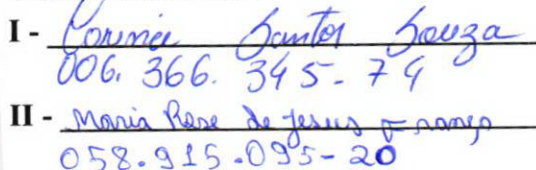 I - Corinéa Santos Souza
006. 366. 345-74
II - Maria Rose de Jesus França
058.915.095-20